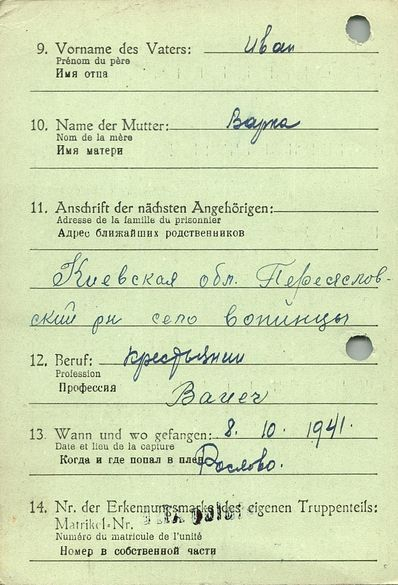 9. Vorname des Vaters: Иван
Prénom du père
Имя отца
10. Name der Mutter: Варка
Nom de la mère
Имя матери
11. Anschrift der nächsten Angehörigen:
Adresse de la famille du prisonnier
Адрес ближайших родственников
Киевская обл. Переяслов-
ский рн село вопинцы
12. Beruf: крестьянин
Profession
Профессия
Bauer
13. Wann und wo gefangen: 8. 10. 1941.
Date et lieu de la capture
Когда и где попал в плен Рослово.
14. Nr. der Erkennungsmarke des eigenen Truppenteils:
Matrikel-Nr.
Numéro du matricule de l'unité
Номер в собственной части